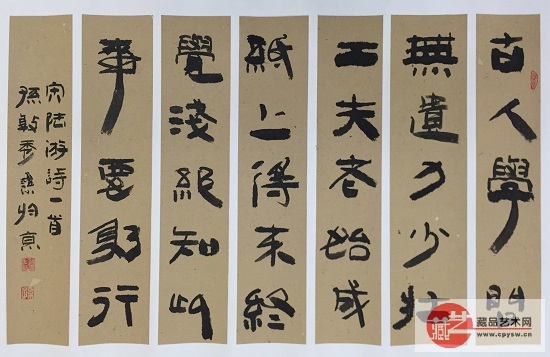 古人學問
無遺力少壯
工夫老始成
紙上得来終
覺淺絕知此
事要躬行
宋陆游詩一首
孫敦秀
藏艺
藏品艺术网
www.cpysw.cn